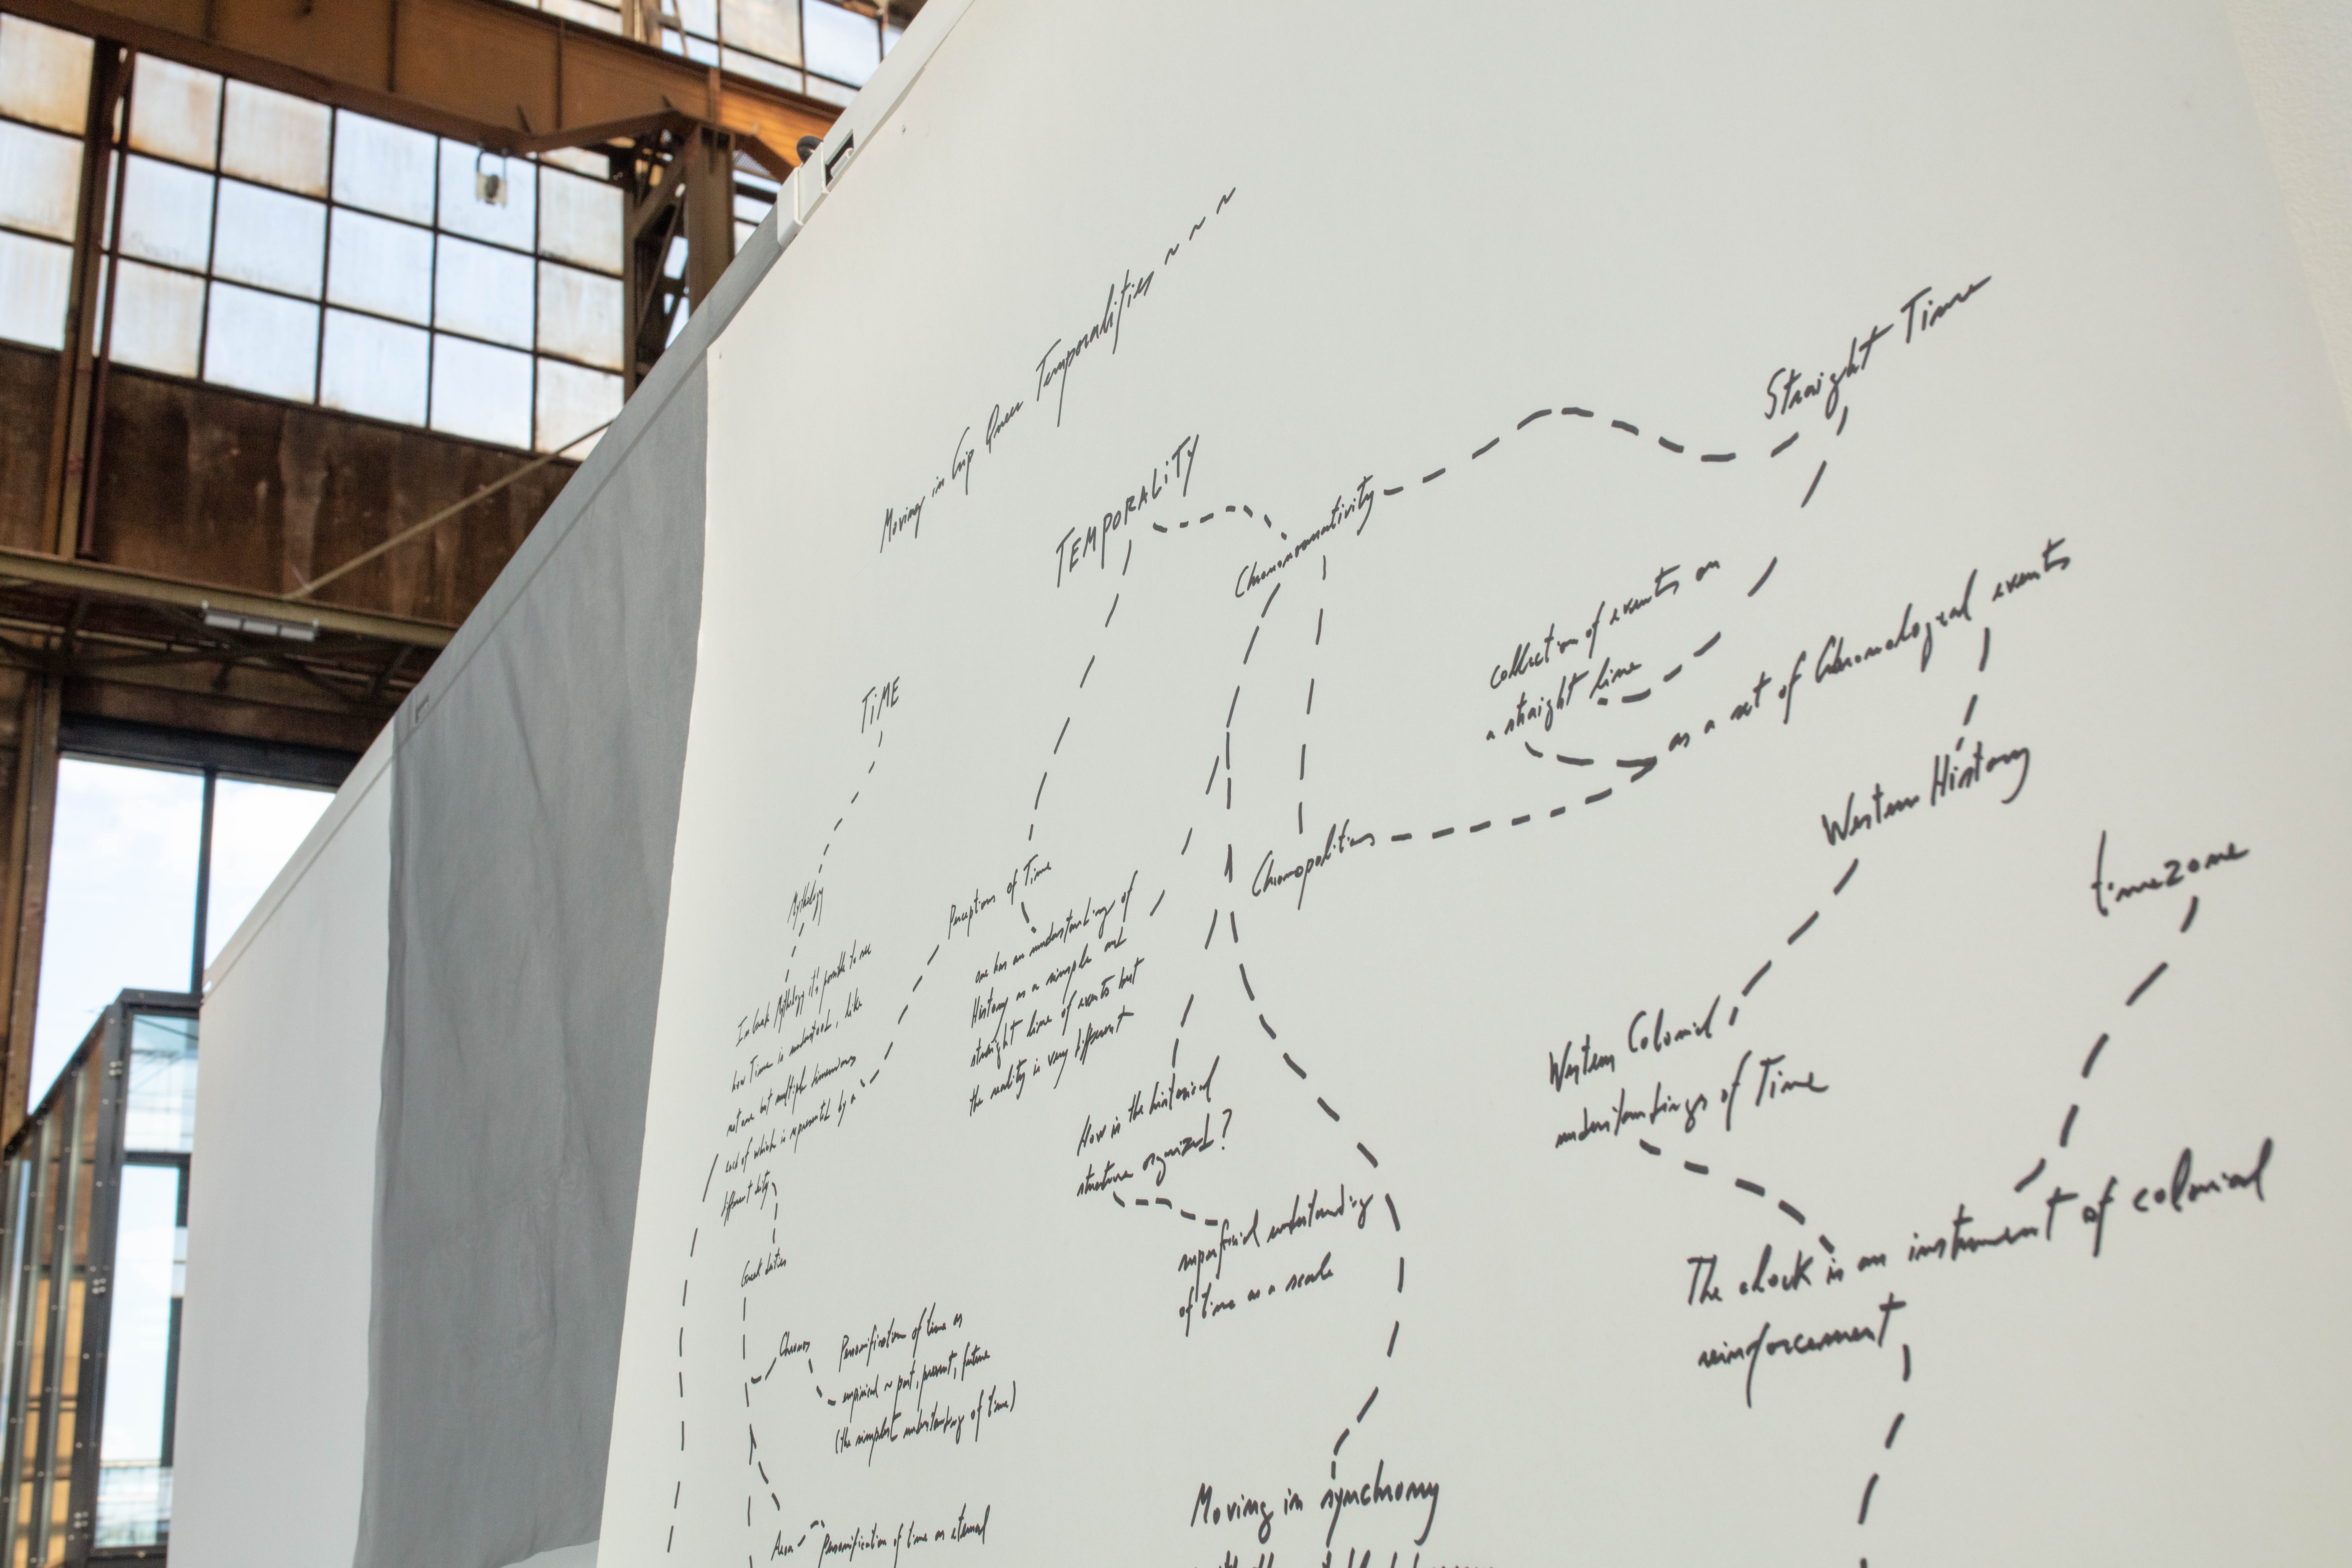 Moving in Crip Queer Temporalities ~ ~ ~
TIME
Mythology
In Greek Mythology it's possible to see
how Time is understood, like
not one but multiple dimensions
each of which is represented by a
different deity
Greek deities
Chronos
Personification of time as
empirical ~ past, present, future
(the simplest understanding of time)
Aion
Personification of time as eternal
TEMPORALITY
Perceptions of Time
one has an understanding of
History as a simple and
straight line of events but
the reality is very different
Chrononormativity
How is the historical
structure organized?
superficial understanding
of time as a scale
Moving in synchrony
Chronopolitics
Straight Time
collection of events on
a straight line
as a set of Chronological events
Western History
Western Colonial
understandings of Time
timezone
The clock is an instrument of colonial
reinforcement